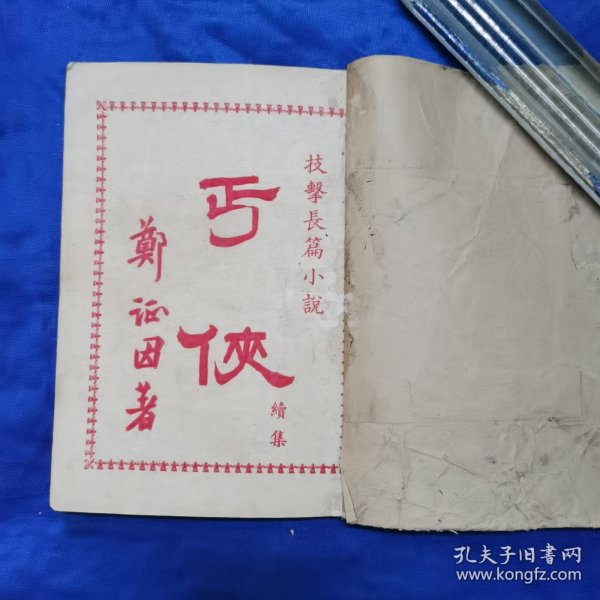 技擊長篇小說
丐俠
續集
鄭証因著
孔夫子旧书网
www.kongfz.com